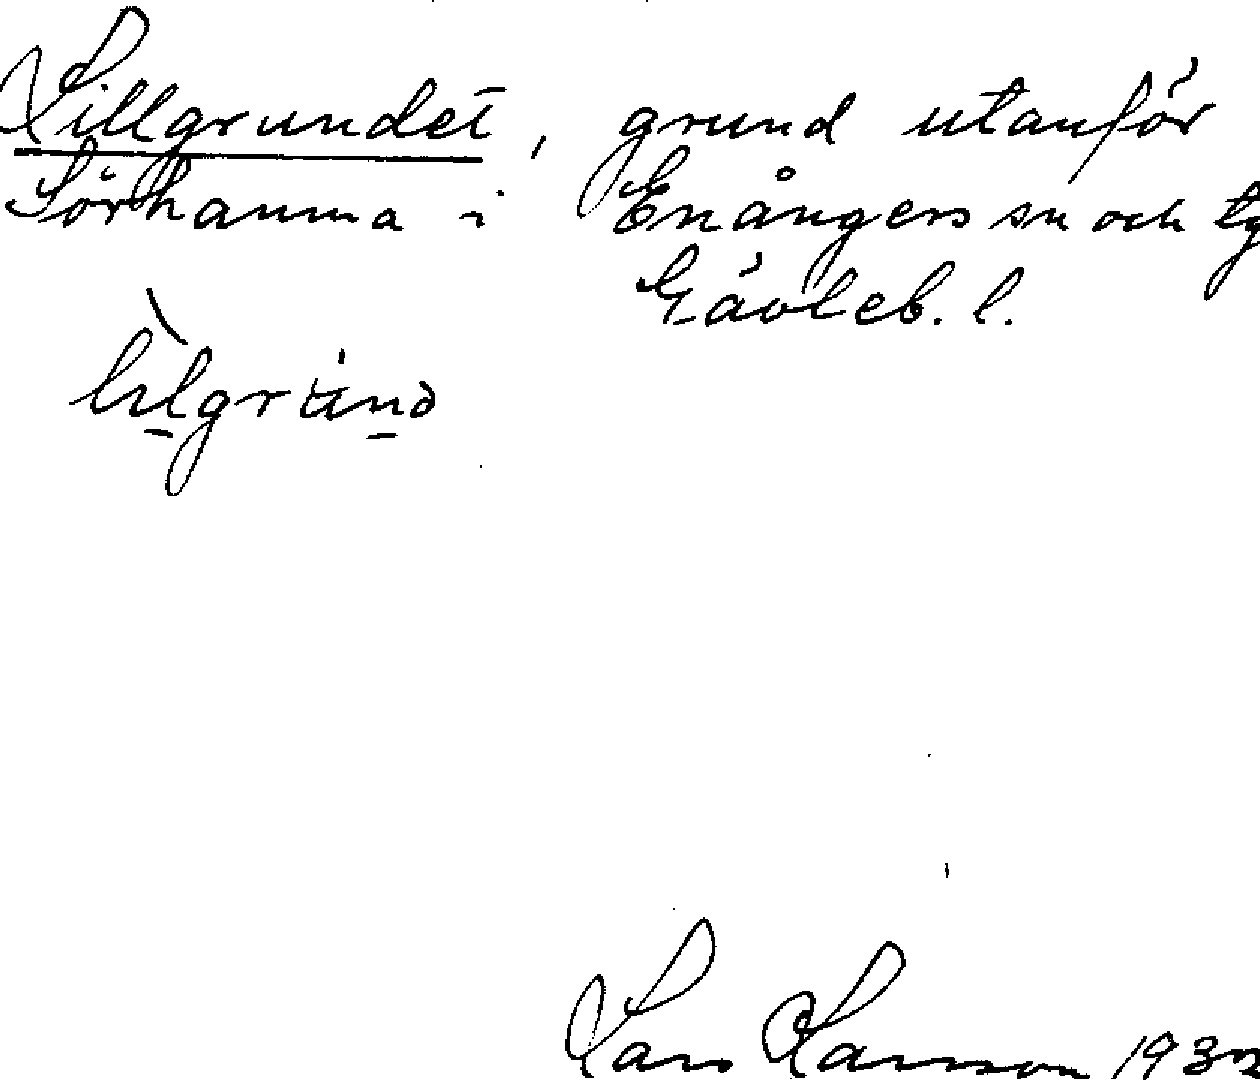 Lillgrundet, grund utanför
Sörhamna i Enångers sn och
Gävleb. l.
Lars Larsson